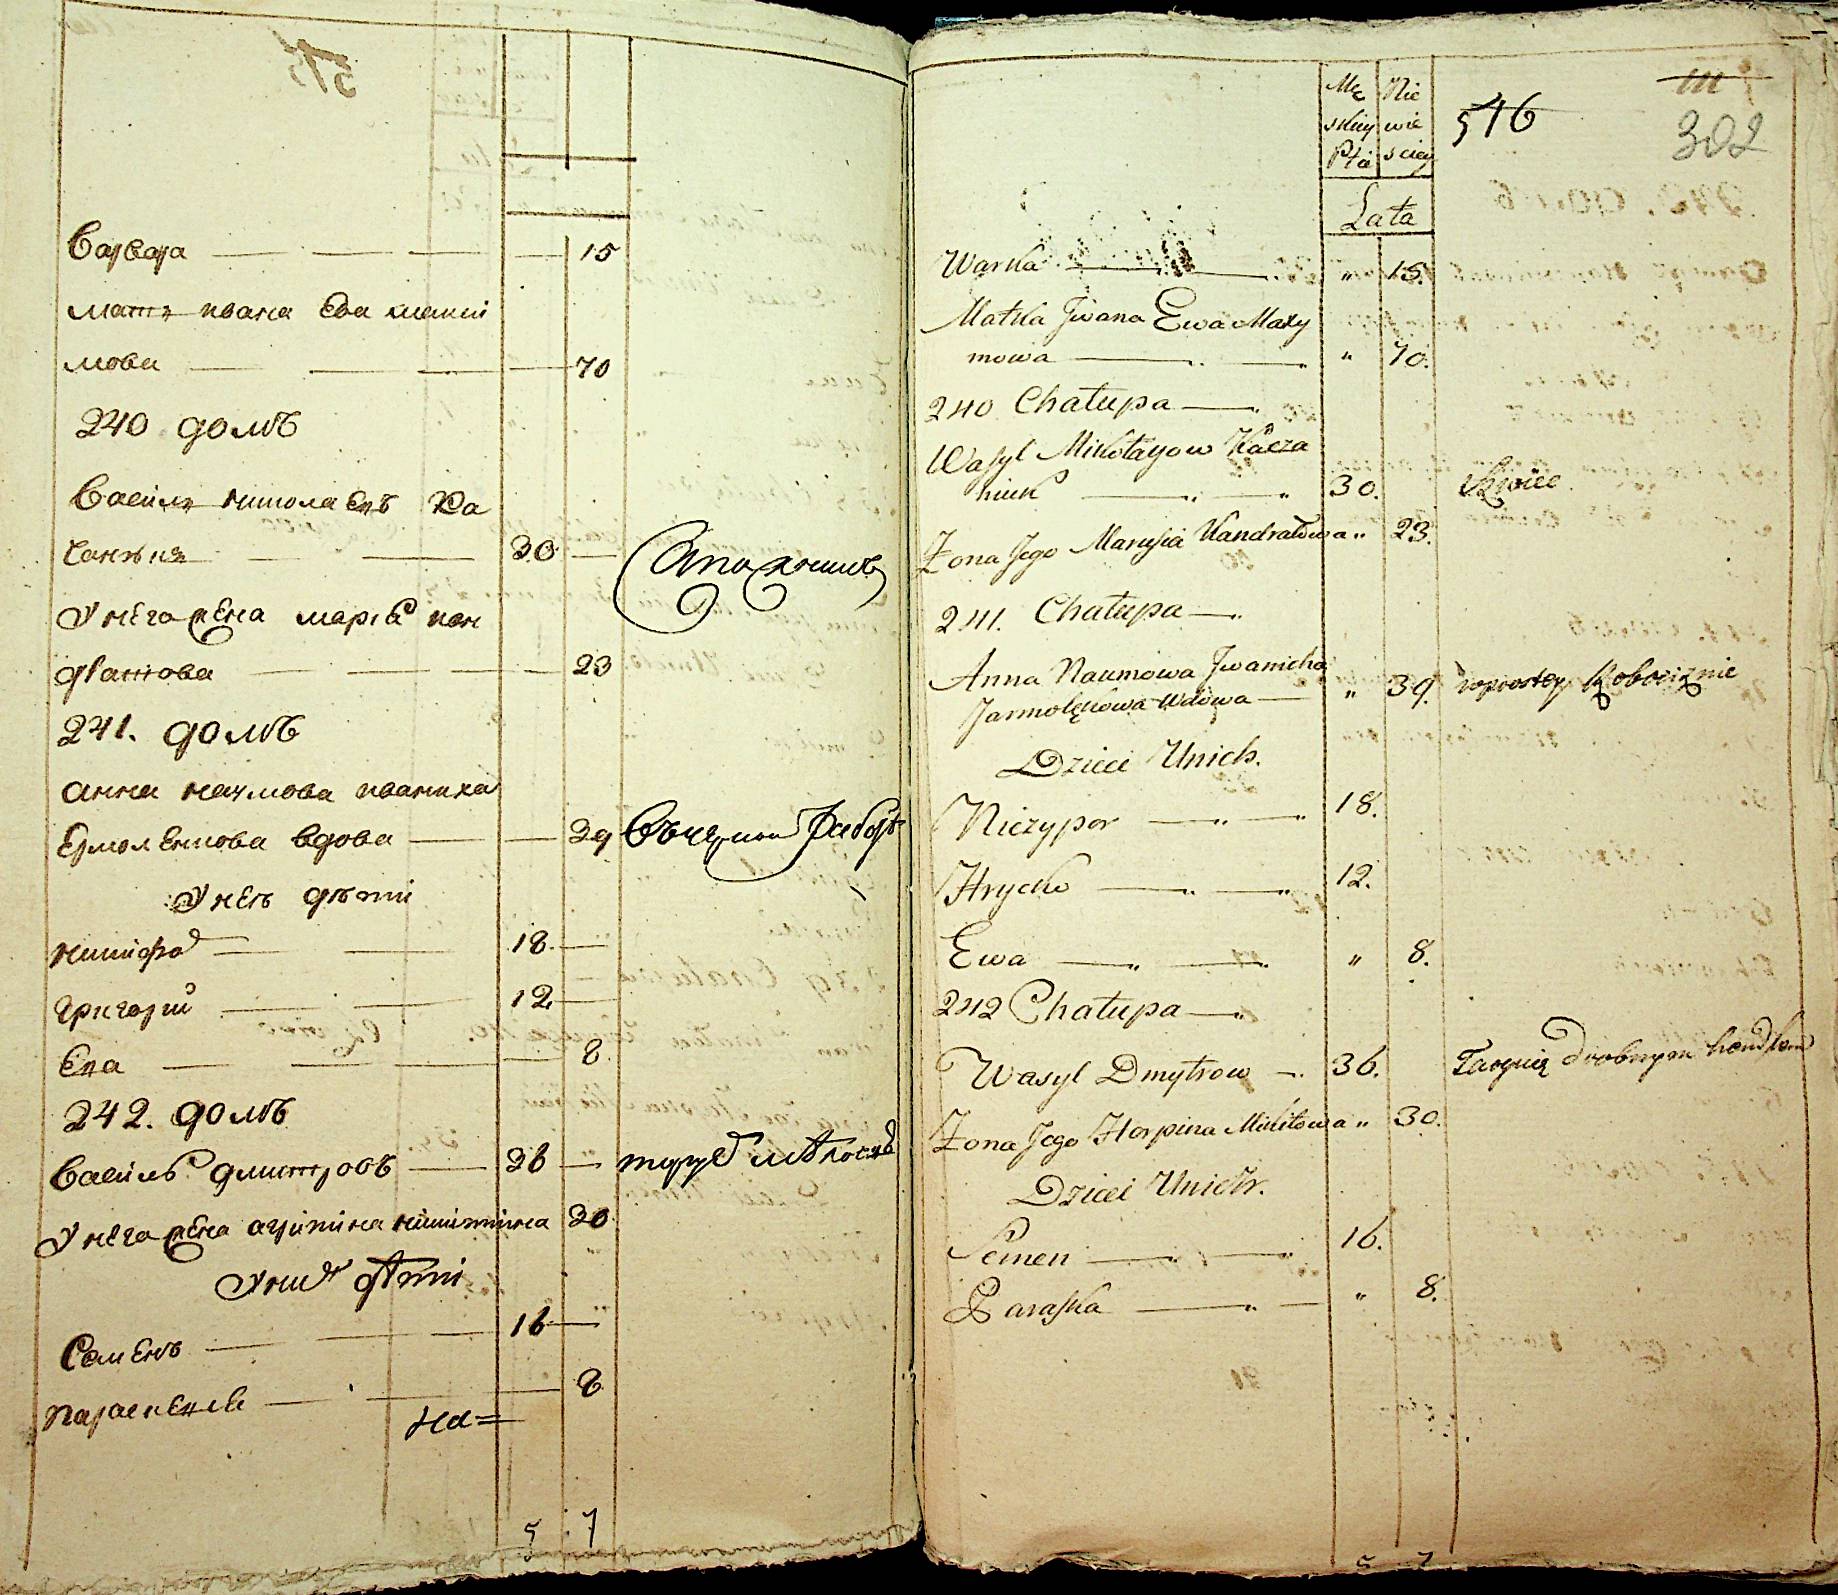 Варвара 15
мать ивана Ева макси
мова 70
240 домъ
Василь николаевъ Ка
чанъня 30 Сапожникъ
У него жена мария кон
дратова 23
241. домъ
анна наумова иваниха
Ермоленкова вдова 39 Въчерной работѣ
У неѣ дѣти
никифор 18
григорий 12
Ева 8
242. домъ
Василь дмитровъ 36
У него жена агрипина никитина 30
У них дѣти
Семенъ 16
параскевія 8
на=
5 7
546
302
Mę Nie
skiey wie
Płci sciey
Lata
Warka " 15.
Matka Jwana Ewa Maxy
mowa " 70.
240 Chałupa
Wasyl Mikołayow Kacza
niuk 30. Szwiec
Zona Jego Marysia Kandratowa " 23.
241. Chałupa
Anna Naumowa Jwanicha
Jarmolękowa Wdowa " 39. w prostey Robociznie
Dzieci Unich.
Niczypor 18.
Hrycko 12.
Ewa " 8.
242 Chałupa
Wasyl Dmytrow 36. Targuią drobnym handlem
Zona Jego Horpina Mikitowa " 30.
Dzieci Unich.
Semen 16.
Paraska " 8.
5 7